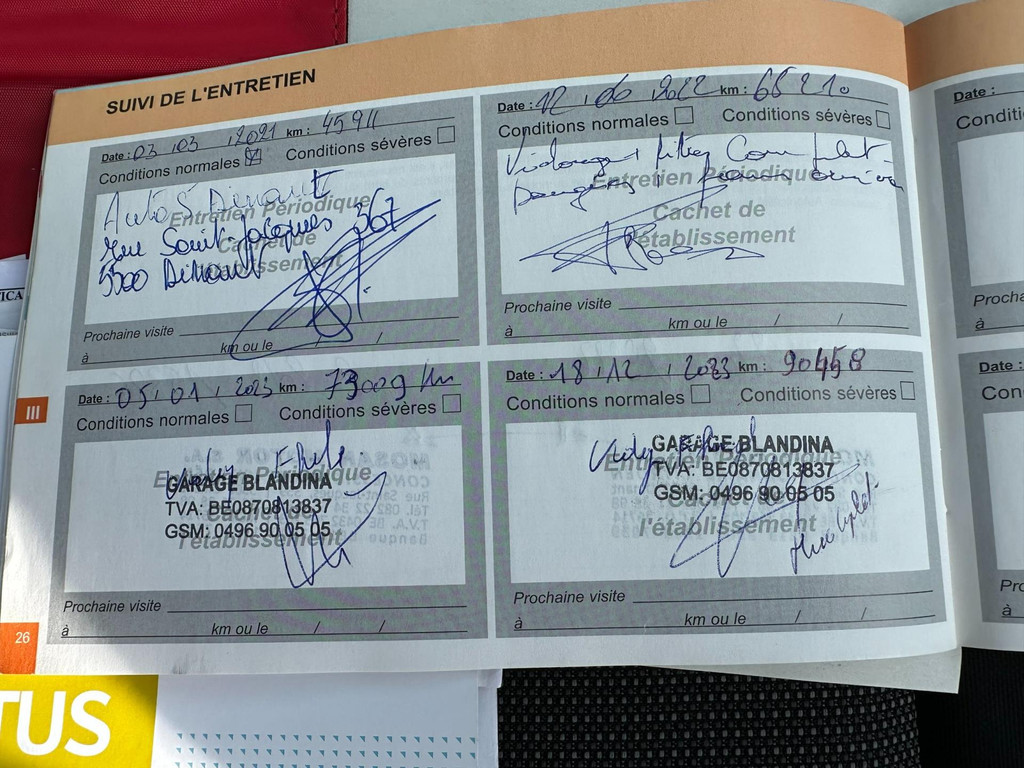 SUIVI DE L'ENTRETIEN
Date : 03 / 03 / 2021 km : 45911
Conditions normales Conditions sévères
Entretien Périodique
Cachet de
l'établissement
Autos Dinant
Rue Saint-Jacques 367
5500 Dinant
Prochaine visite
à km ou le / /
Date : 12 / 06 / 2022 km : 66210
Conditions normales Conditions sévères
Entretien Périodique
Cachet de
l'établissement
Prochaine visite
à km ou le / /
Date : 05 / 01 / 2023 km : 73009 km
Conditions normales Conditions sévères
Entretien Périodique
Cachet de
l'établissement
GARAGE BLANDINA
TVA: BE0870813837
GSM: 0496 90 05 05
Prochaine visite
à km ou le / /
Date : 18 / 12 / 2023 km : 90458
Conditions normales Conditions sévères
Entretien Périodique
Cachet de
l'établissement
GARAGE BLANDINA
TVA: BE0870813837
GSM: 0496 90 05 05
Prochaine visite
à km ou le / /
III
26
Date :
Date :
TUS